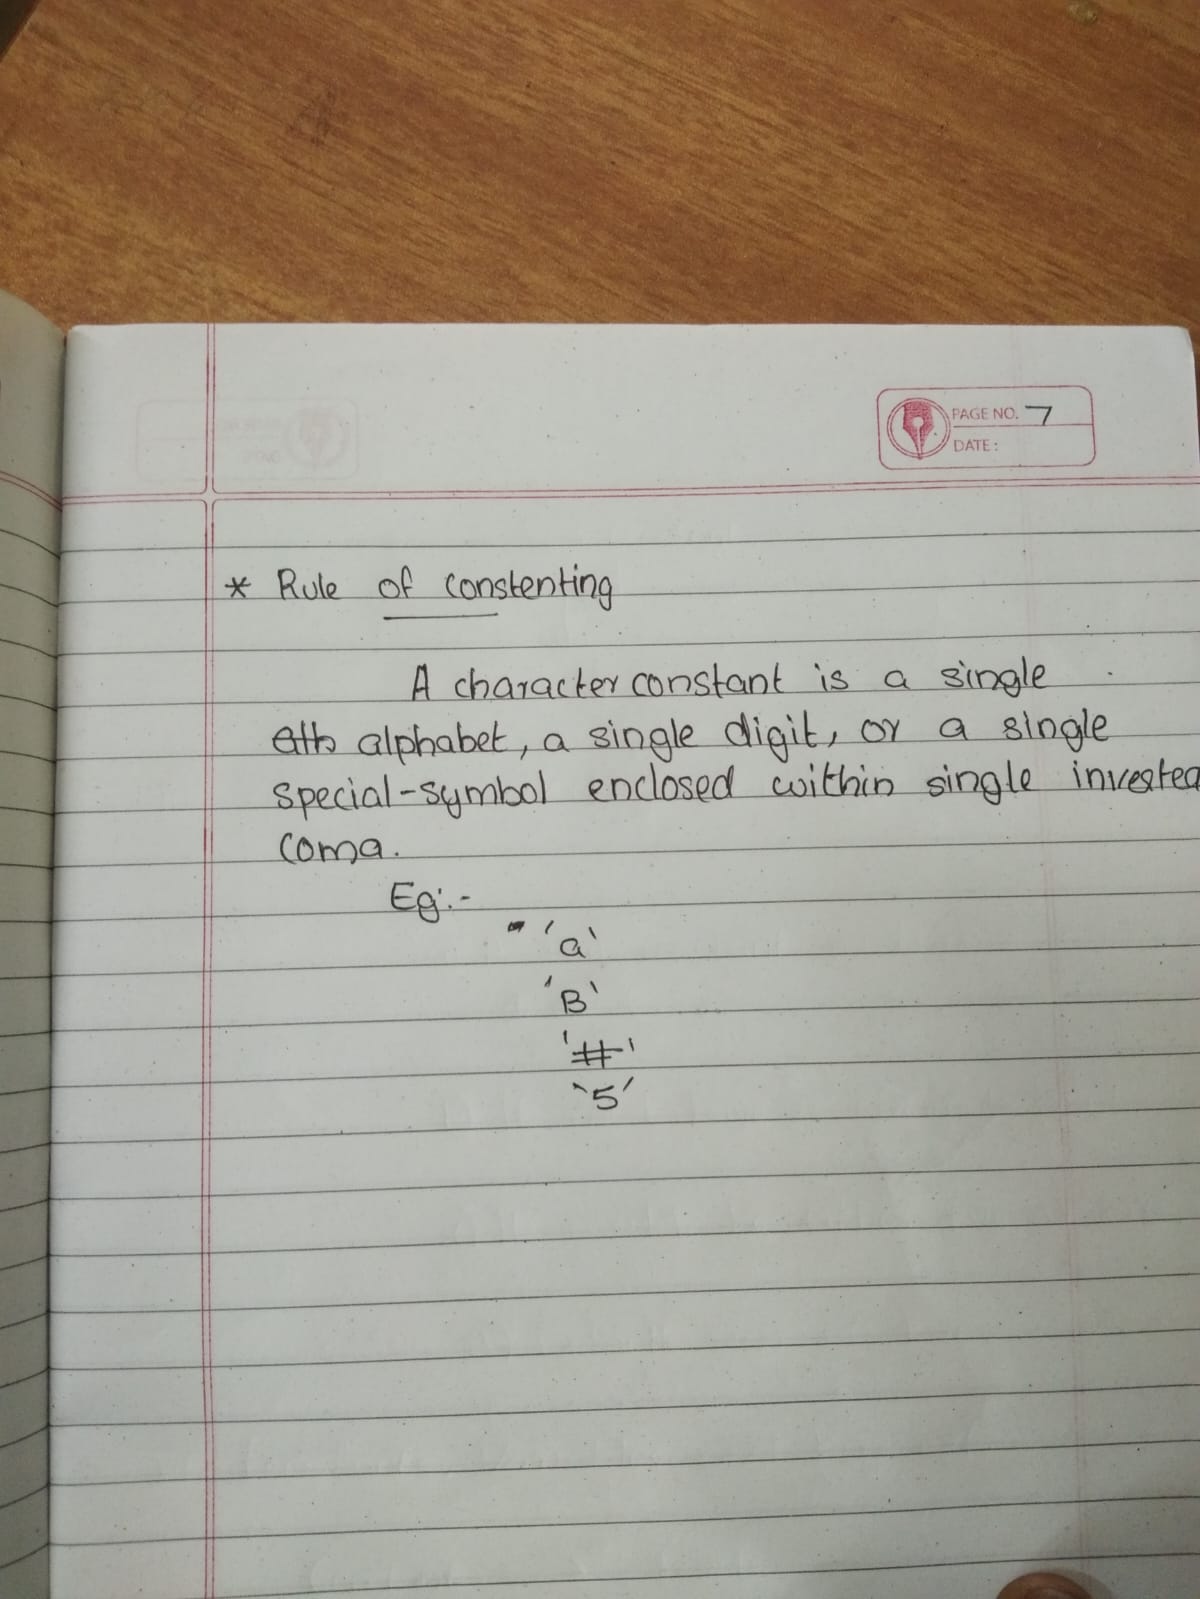 PAGE NO. 7
DATE:
* Rule of constenting
A character constant is a single
alphabet, a single digit, or a single
special-symbol enclosed within single invested
coma.
Eg:-
'a'
'B'
'#'
'5'